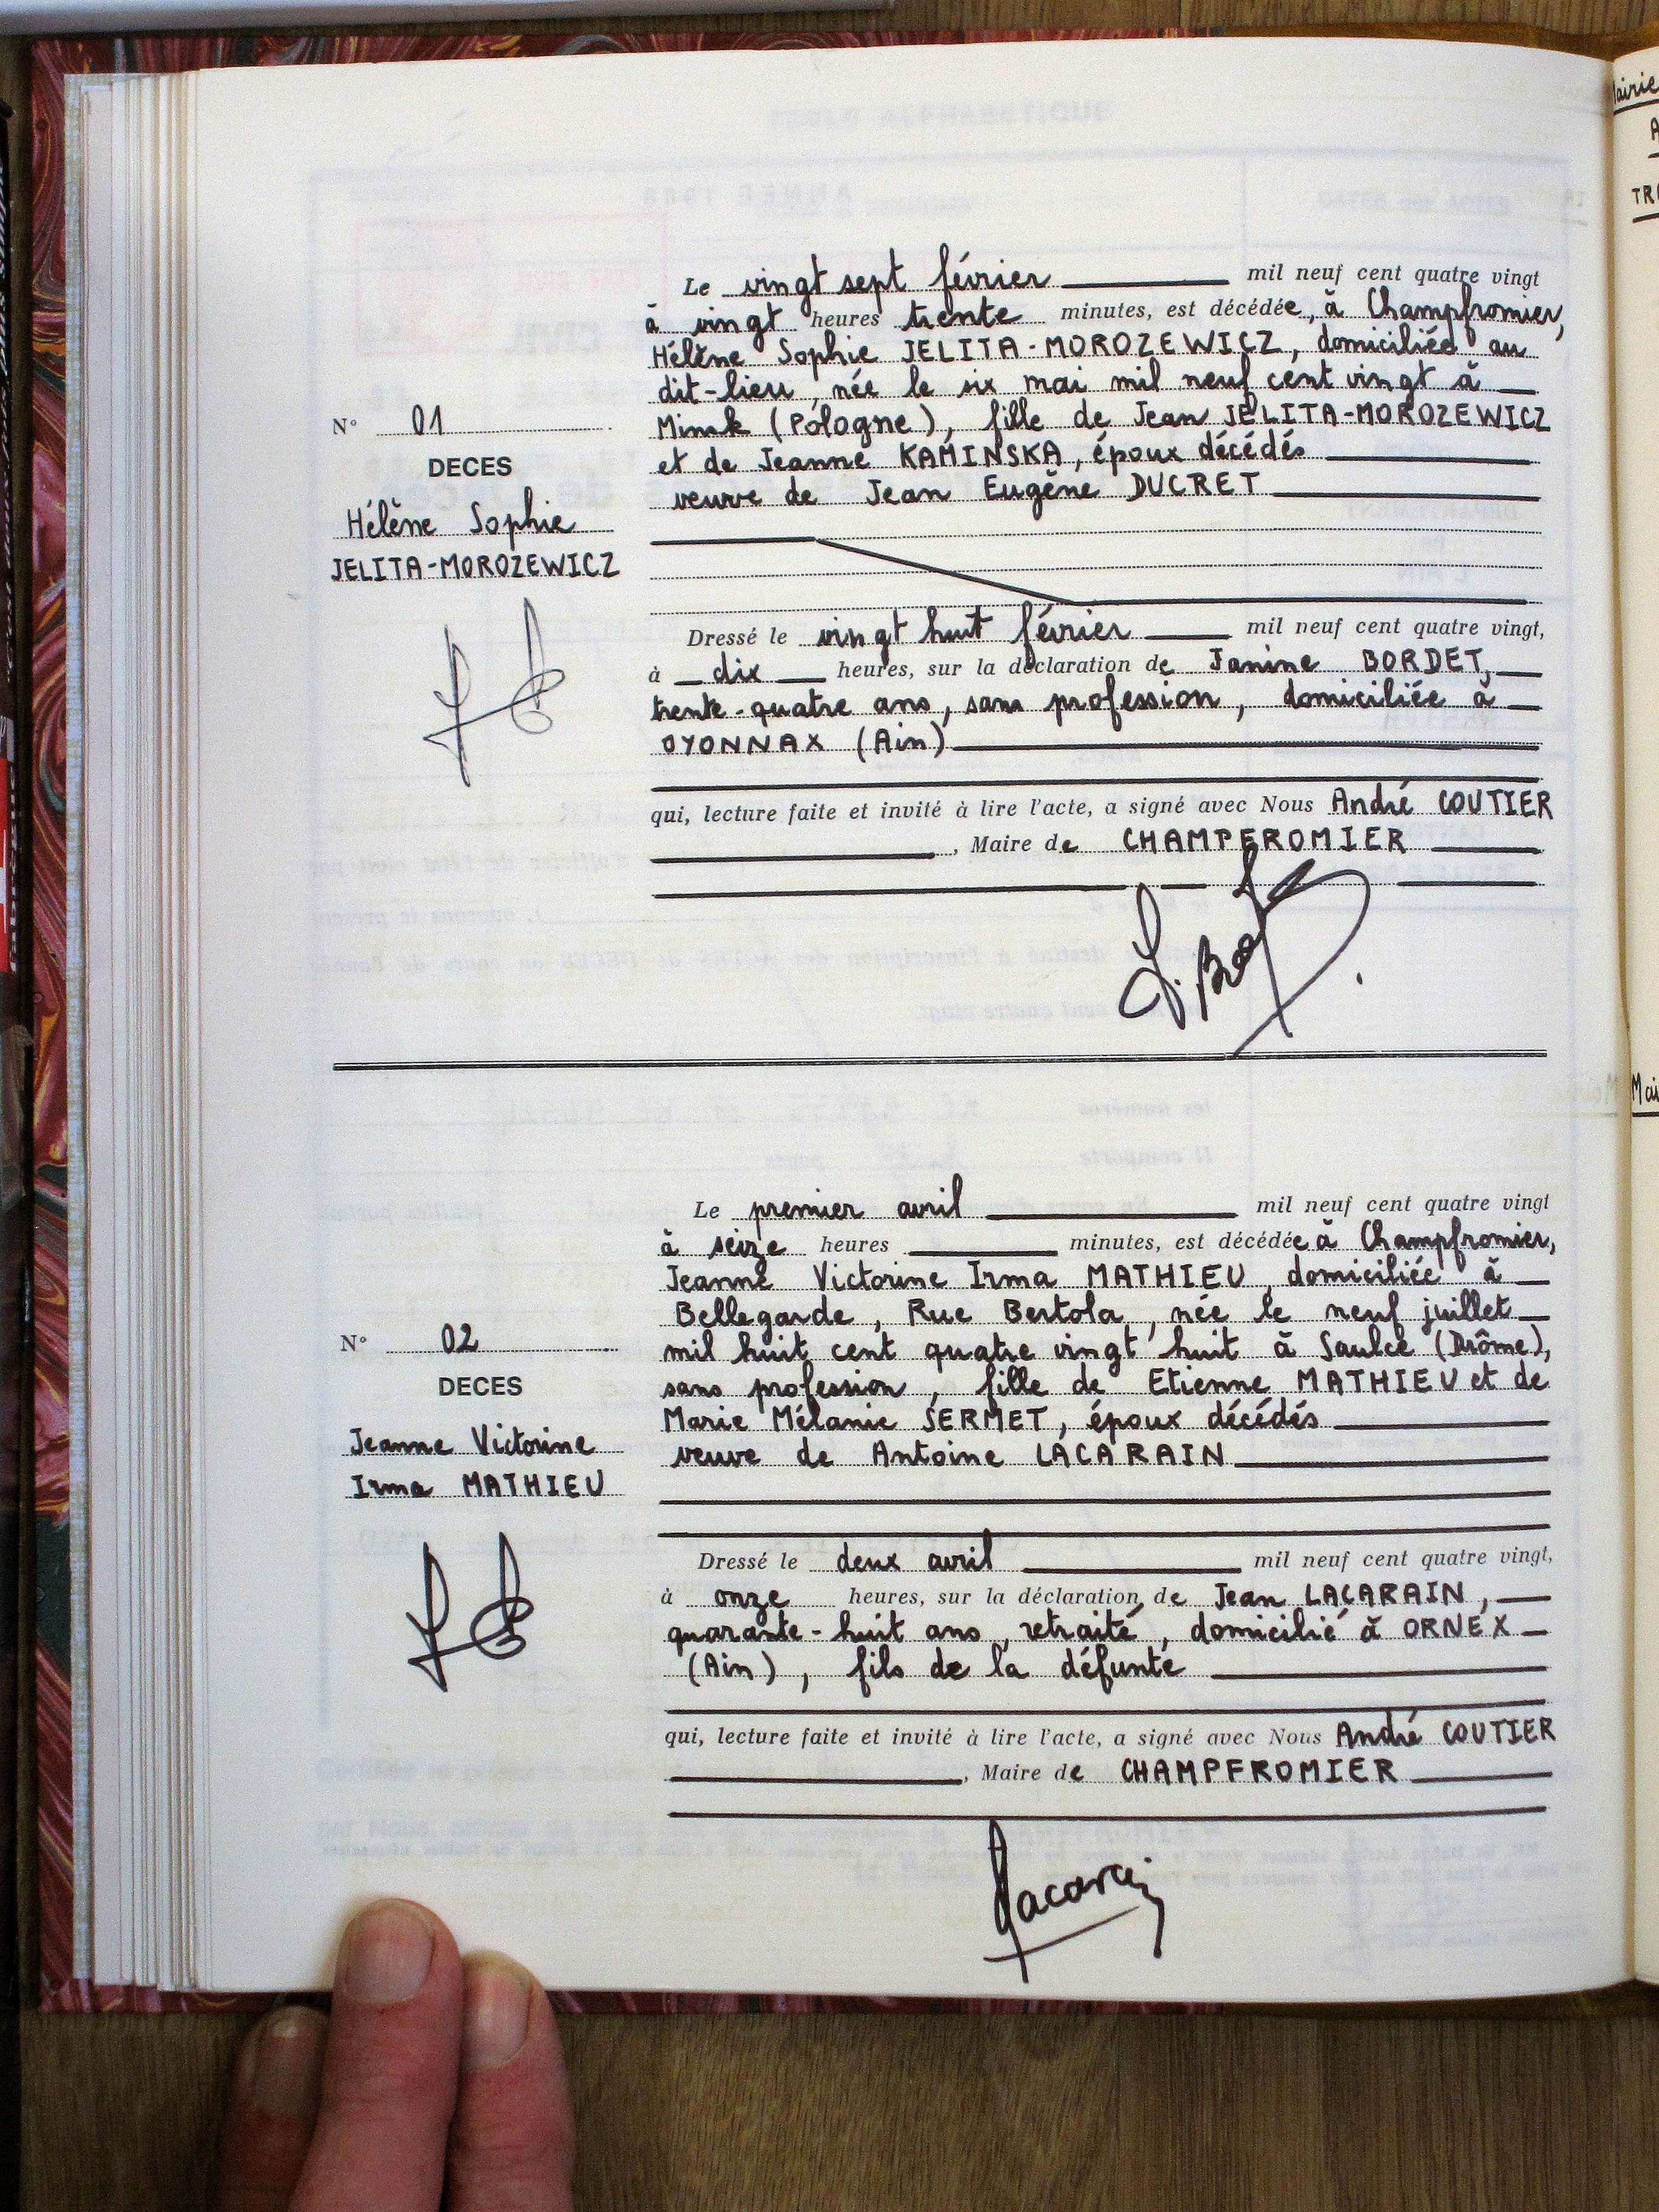 Le vingt sept février mil neuf cent quatre vingt
à vingt heures trente minutes, est décédée, à Champfromier,
Hélène Sophie JELITA-MOROZEWICZ, domiciliée au
dit-lieu, née le six mai mil neuf cent vingt à
Minsk (Pologne), fille de Jean JELITA-MOROZEWICZ
et de Jeanne KAMINSKA, époux décédés
veuve de Jean Eugène DUCRET
N° 01
DECES
Hélène Sophie
JELITA-MOROZEWICZ
Dressé le vingt huit février mil neuf cent quatre vingt,
à dix heures, sur la déclaration de Janine BORDET,
trente-quatre ans, sans profession, domiciliée à
OYONNAX (Ain)
qui, lecture faite et invité à lire l'acte, a signé avec Nous André COUTIER
, Maire de CHAMPFROMIER
Le premier avril mil neuf cent quatre vingt
à seize heures minutes, est décédée à Champfromier,
Jeanne Victorine Irma MATHIEU, domiciliée à
Bellegarde, Rue Bertola, née le neuf juillet
mil huit cent quatre vingt huit à Saulce (Drôme),
sans profession, fille de Etienne MATHIEU et de
Marie Mélanie SERMET, époux décédés
veuve de Antoine LACARAIN
N° 02
DECES
Jeanne Victorine
Irma MATHIEU
Dressé le deux avril mil neuf cent quatre vingt,
à onze heures, sur la déclaration de Jean LACARAIN,
quarante-huit ans, retraité, domicilié à ORNEX
(Ain), fils de la défunte
qui, lecture faite et invité à lire l'acte, a signé avec Nous André COUTIER
, Maire de CHAMPFROMIER
Lacarain